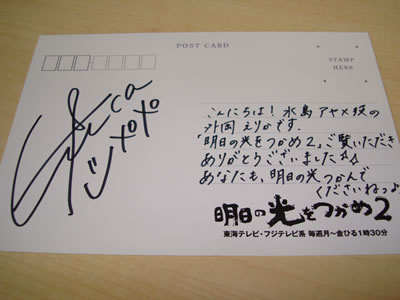 POST CARD
STAMP
HERE
Erica
xoxo
こんにちは! 水島アヤメ役の
外岡えりかです。
「明日の光をつかめ2」ご覧いただき
ありがとうございました☆♪
あなたも、明日の光つかんで
くださいねっ♪
明日の光をつかめ2
東海テレビ・フジテレビ系 毎週月~金ひる1時30分